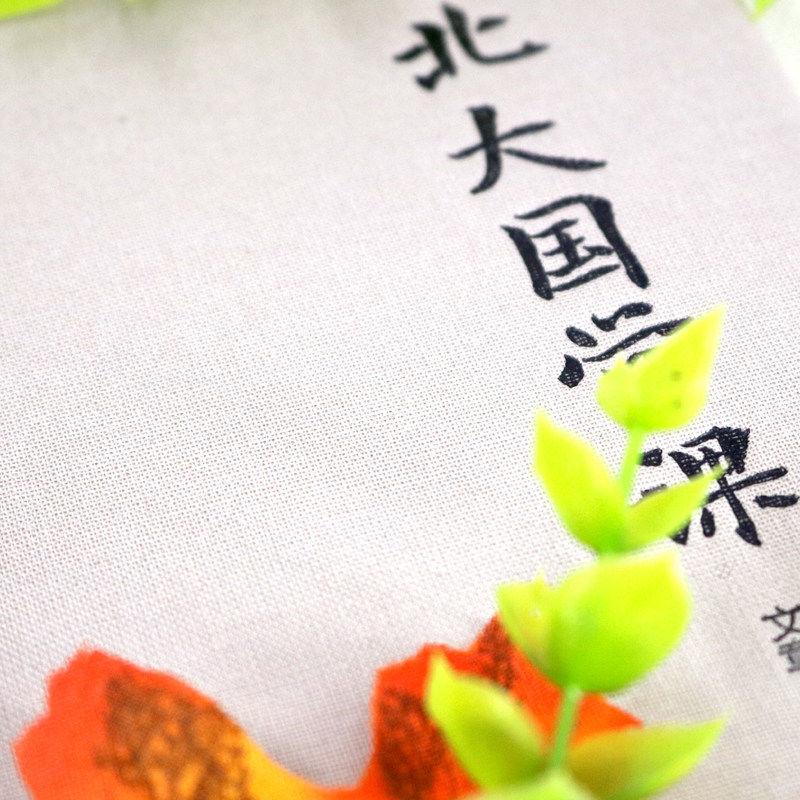 北大国学课
文